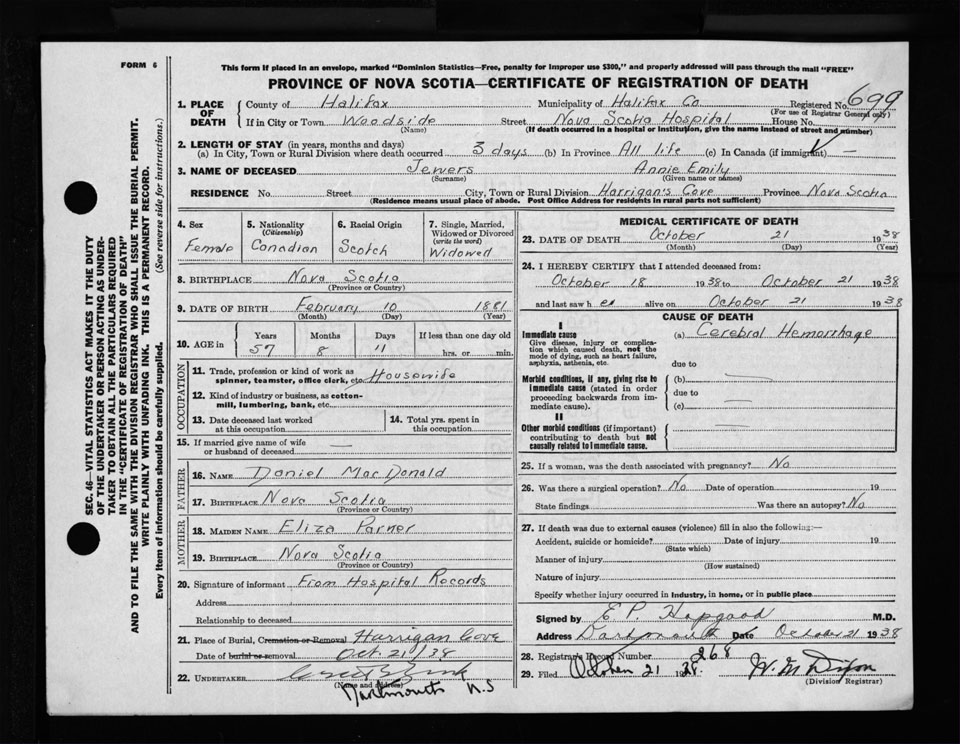 FORM 6
This form if placed in an envelope, marked "Dominion Statistics—Free, penalty for improper use $300," and properly addressed will pass through the mail "FREE"
PROVINCE OF NOVA SCOTIA—CERTIFICATE OF REGISTRATION OF DEATH
1. PLACE OF DEATH County of Halifax Municipality of Halifax Co. Registered No. 699
(For use of Registrar General only)
If in City or Town Woodside Street Nova Scotia Hospital House No.
(Name) (If death occurred in a hospital or institution, give the name instead of street and number)
2. LENGTH OF STAY (in years, months and days)
(a) In City, Town or Rural Division where death occurred 3 days (b) In Province All life (c) In Canada (if immigrant) —
3. NAME OF DECEASED Jewers Annie Emily
(Surname) (Given name or names)
RESIDENCE No. Street City, Town or Rural Division Harrigan's Cove Province Nova Scotia
(Residence means usual place of abode. Post Office Address for residents in rural parts not sufficient)
4. Sex Female
5. Nationality (Citizenship) Canadian
6. Racial Origin Scotch
7. Single, Married, Widowed or Divorced (write the word) Widowed
8. BIRTHPLACE Nova Scotia
(Province or Country)
9. DATE OF BIRTH February 10 1881
(Month) (Day) (Year)
10. AGE in Years 57 Months 8 Days 11 If less than one day old hrs. or min.
OCCUPATION
11. Trade, profession or kind of work as spinner, teamster, office clerk, etc. Housewife
12. Kind of industry or business, as cotton-mill, lumbering, bank, etc.
13. Date deceased last worked at this occupation
14. Total yrs. spent in this occupation
15. If married give name of wife or husband of deceased —
FATHER
16. NAME Daniel MacDonald
17. BIRTHPLACE Nova Scotia
(Province or Country)
MOTHER
18. MAIDEN NAME Eliza Parner
19. BIRTHPLACE Nova Scotia
(Province or Country)
20. Signature of informant From Hospital Records
Address
Relationship to deceased
21. Place of Burial, Cremation or Removal Harrigan Cove
Date of burial or removal Oct. 21/38
22. UNDERTAKER
(Name and address)
Dartmouth N.S
MEDICAL CERTIFICATE OF DEATH
23. DATE OF DEATH October 21 1938
(Month) (Day) (Year)
24. I HEREBY CERTIFY that I attended deceased from:
October 18 1938 to October 21 1938
and last saw h er alive on October 21 1938
CAUSE OF DEATH
I
Immediate cause (a) Cerebral Hemorrhage
Give disease, injury or complication which caused death, not the mode of dying, such as heart failure, asphyxia, asthenia, etc.
due to
Morbid conditions, if any, giving rise to immediate cause (stated in order proceeding backwards from immediate cause). (b) —
due to
(c) —
II
Other morbid conditions (if important) contributing to death but not causally related to immediate cause. —
25. If a woman, was the death associated with pregnancy? No
26. Was there a surgical operation? No Date of operation 19
State findings Was there an autopsy? No
27. If death was due to external causes (violence) fill in also the following:—
Accident, suicide or homicide? Date of injury 19
(State which)
Manner of injury
(How sustained)
Nature of injury
Specify whether injury occurred in industry, in home, or in public place
Signed by E P. Hopgood M.D.
Address Dartmouth Date October 21 1938
28. Registrar's Record Number 268
29. Filed October 21 1938. W. M Dixon
(Division Registrar)
SEC. 46—VITAL STATISTICS ACT MAKES IT THE DUTY
OF THE UNDERTAKER OR PERSON ACTING AS UNDER-
TAKER TO OBTAIN ALL THE PARTICULARS REQUIRED
IN THE "CERTIFICATE OF REGISTRATION OF DEATH"
AND TO FILE THE SAME WITH THE DIVISION REGISTRAR WHO SHALL ISSUE THE BURIAL PERMIT.
WRITE PLAINLY WITH UNFADING INK. THIS IS A PERMANENT RECORD.
Every item of information should be carefully supplied. (See reverse side for instructions.)